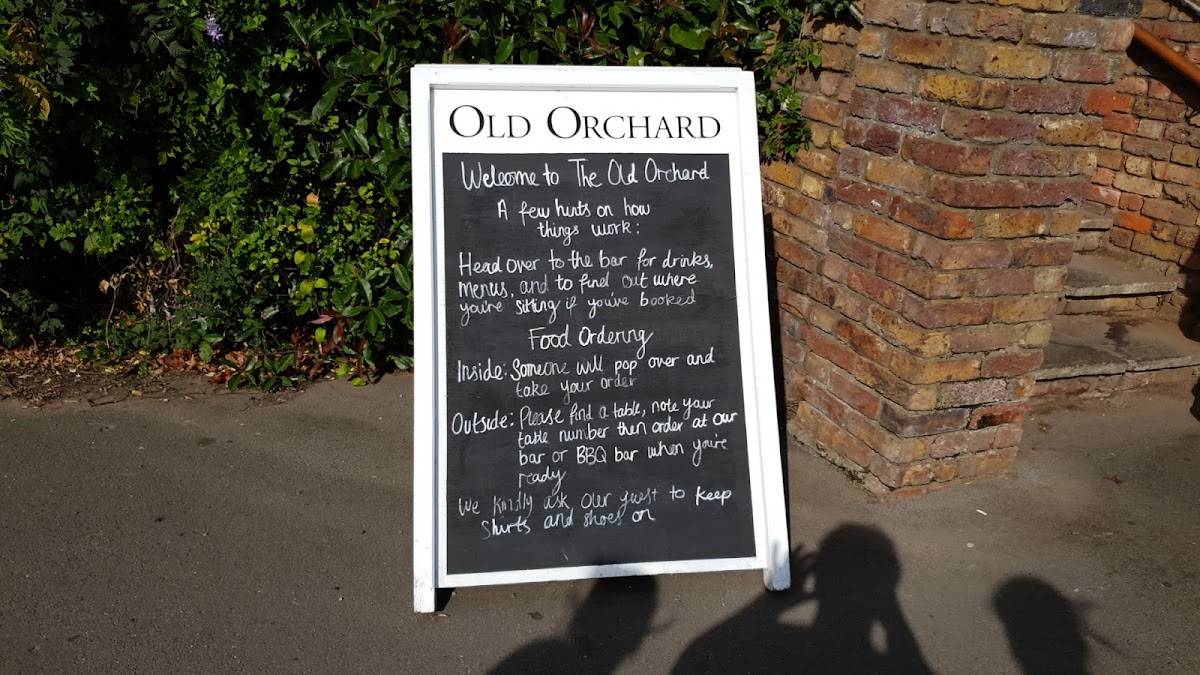 OLD ORCHARD
Welcome to The Old Orchard
A few hints on how
things work:
Head over to the bar for drinks,
menus, and to find out where
you're sitting if you've booked
Food Ordering
Inside: Someone will pop over and
take your order
Outside: Please find a table, note your
table number then order at our
bar or BBQ bar when you're
ready
We kindly ask our guest to keep
shirts and shoes on